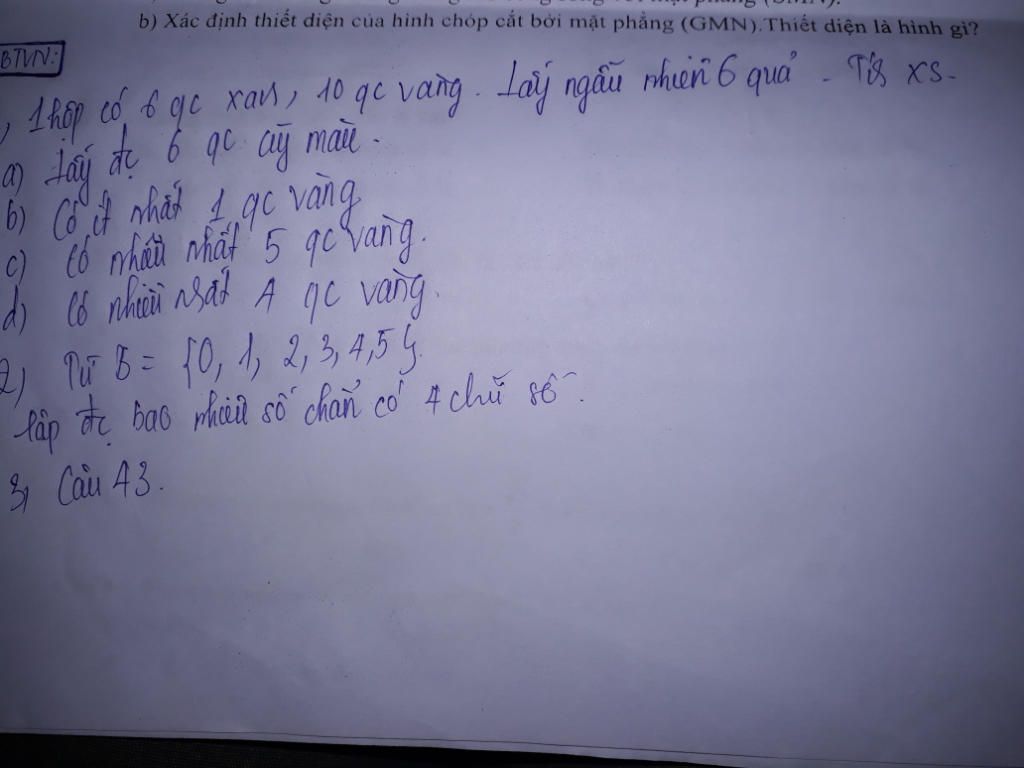 b) Xác định thiết diện của hình chóp cắt bởi mặt phẳng (GMN).Thiết diện là hình gì?
BTVN:
, 1 hộp có 6 qc xanh, 10 qc vàng. Lấy ngẫu nhiên 6 quả. Tính XS.
a) Lấy đc 6 qc cùng màu.
b) Có ít nhất 1 qc vàng
c) Có nhiều nhất 5 qc vàng.
d) Có nhiều nhất 4 qc vàng.
2) Từ B = {0, 1, 2, 3, 4, 5}.
lập đc bao nhiêu số chẵn có 4 chữ số.
3, Câu 43.